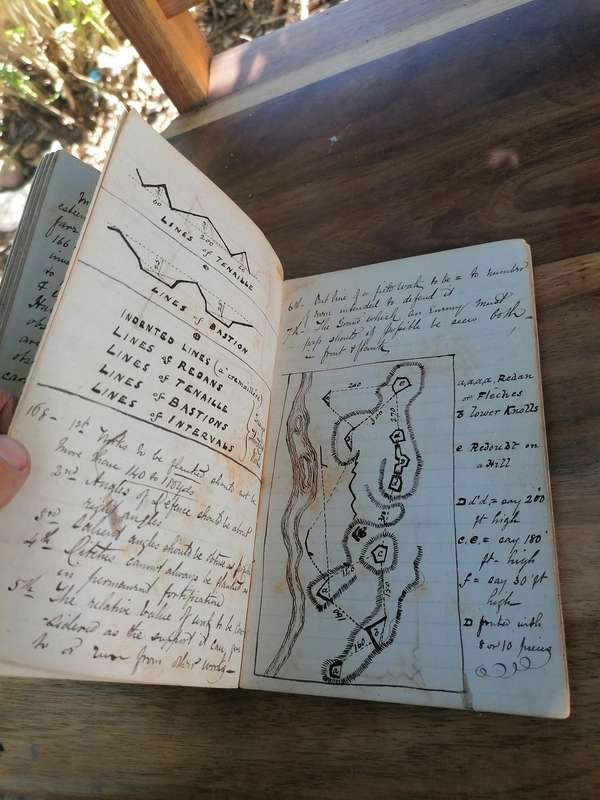 166
60
200
LINES of TENAILLE
LINES of BASTION
INDENTED LINES (a' cremaillere)
LINES of REDANS
LINES of TENAILLE
LINES of BASTIONS
LINES of INTERVALS
168- 1st Works to be flanked should not be
more than 140 to 180 yds
2nd Angles of defence should be about
right angles
3rd Salient angles should be obtuse as
4th Ditches cannot always be flanked as
in permanent fortification
5th The relative value of work to be con
-sidered as the support it can give
to or receive from other works-
6th- Outline of a field work to be = to number
of men intended to defend it
7th- The Ground which an Enemy must
pass should if possible be seen both
in front & flank
240
270
a,a,a,a, Redan
or Flèches
B Lower Knolls
e Redoubt on
a Hill
D d'd, = say 200
ft high
c.e. = say 180
ft- high
f = say 30 ft
high
D fronted with
8 or 10